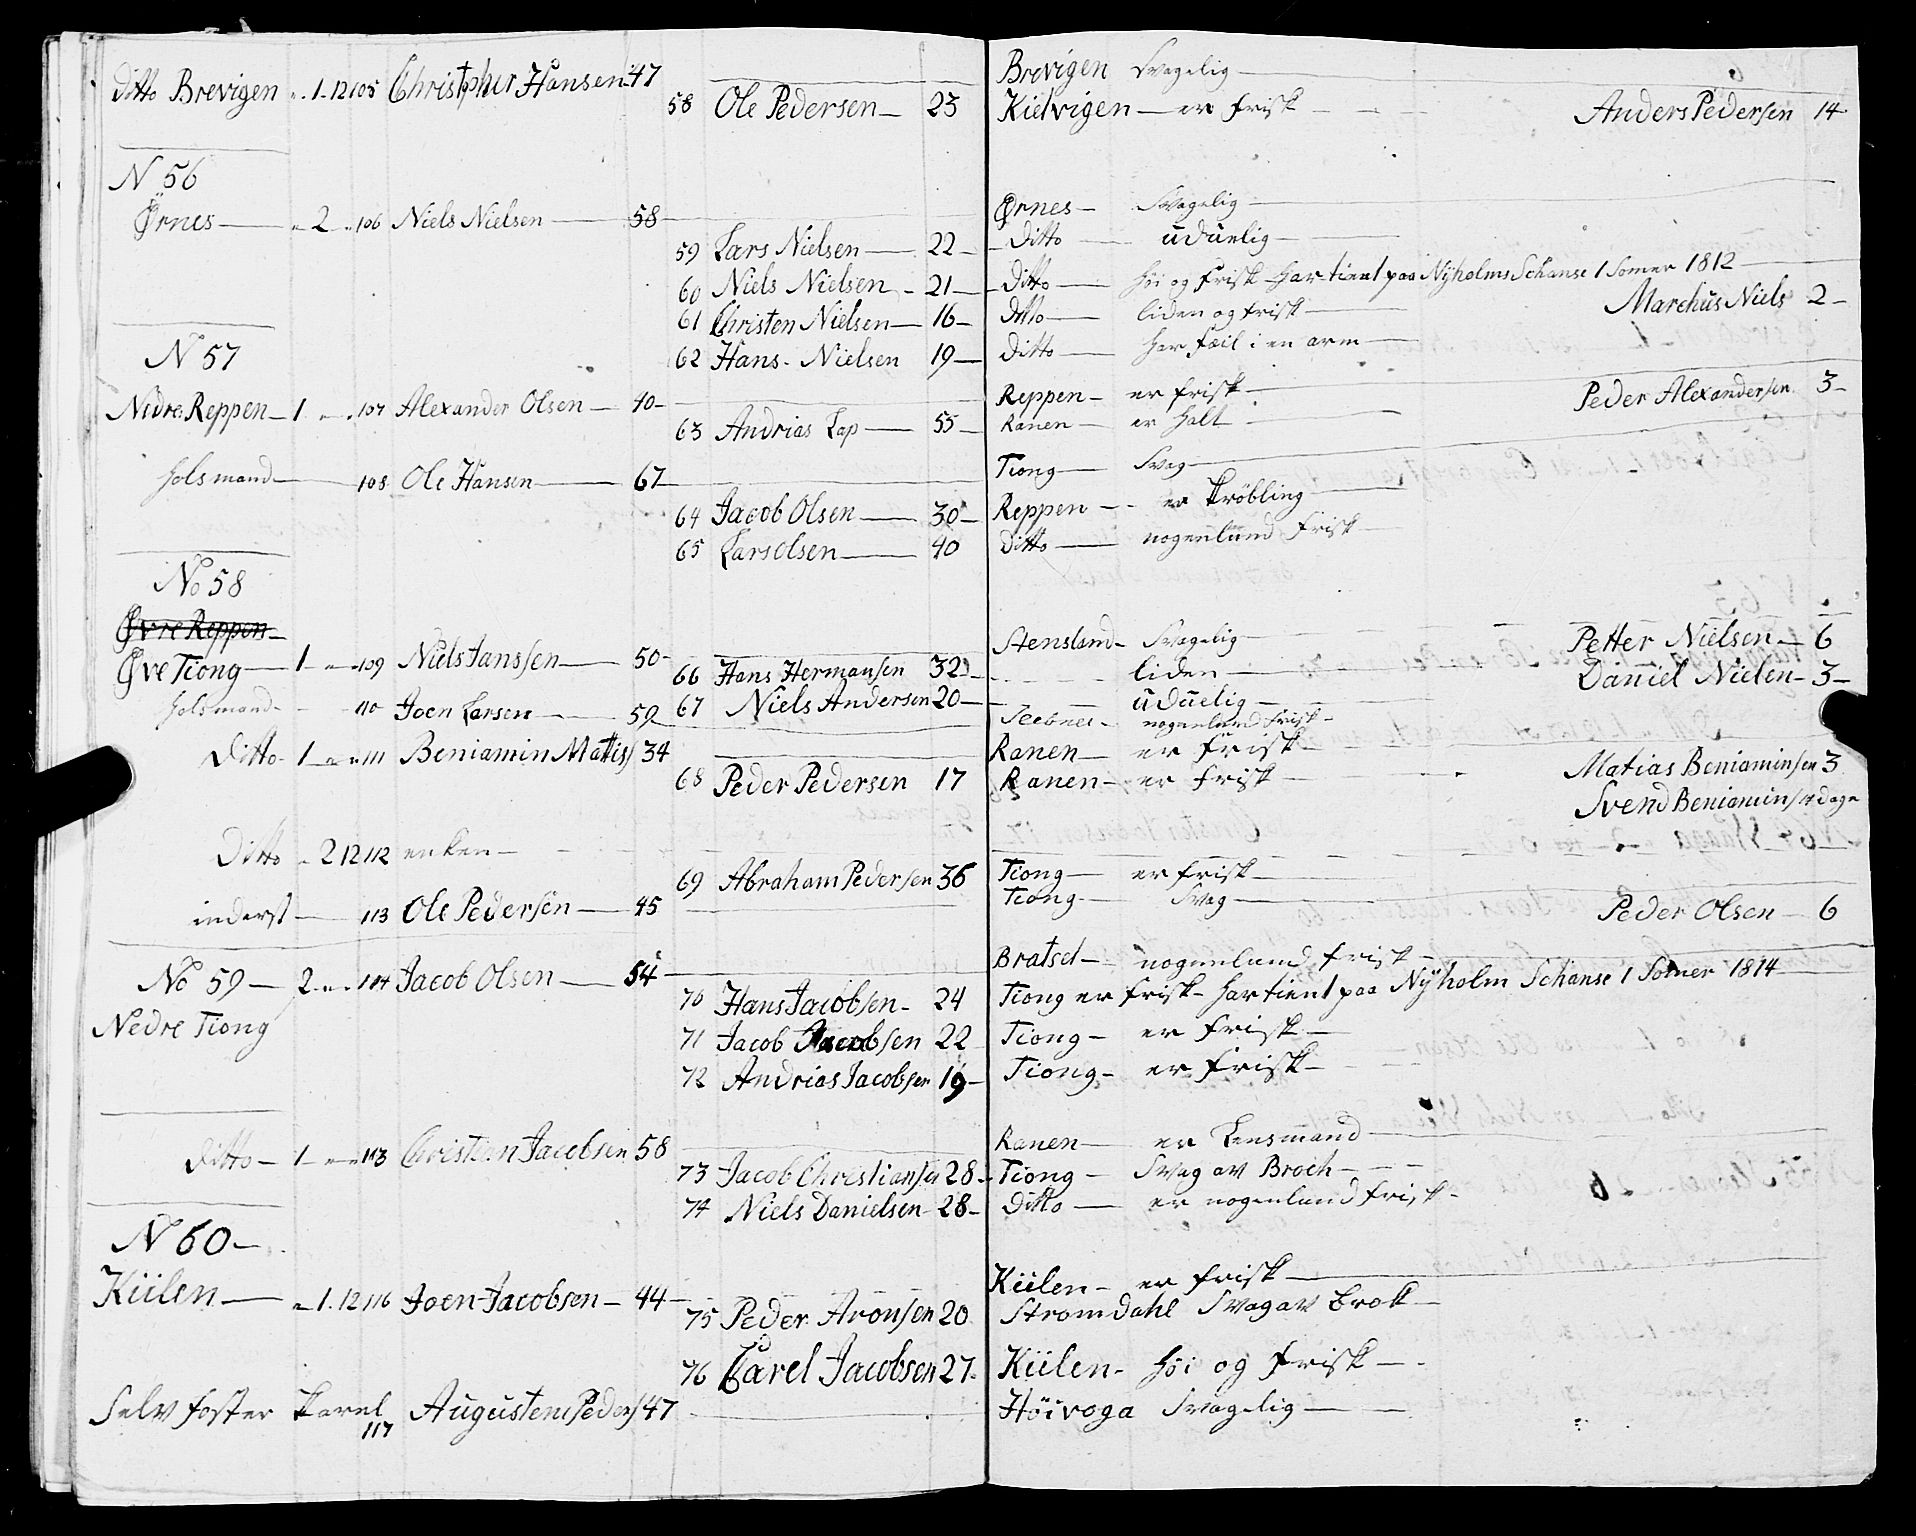 Ditto Brevigen „ 1. 12 105 Christopher Hansen 47 Brevigen Svagelig
58 Ole Pedersen 23 Kielvigen er frisk Anders Pedersen 14
N 56
Ørnes „ 2 „ 106 Niels Nielsen 58 Ørnes Svagelig
59 Lars Nielsen 22 Ditto uduelig
60 Niels Nielsen 21 Ditto Høi og Frisk har tient paa Nyholms Schanse 1 Somer 1812
61 Christen Nielsen 16 Ditto liden og frisk Marchus Niels 2
62 Hans Nielsen 19 Ditto har Fæil i en arm
N 57
Nedre Reppen 1 „ „ 107 Alexander Olsen 40 Reppen er frisk Peder Alexandersen 3
63 Andrias Lap 55 Ranen er Halt
Holsmand 108 Ole Hansen 67 Tiong Svag
64 Jacob Olsen 30 Reppen er Krøbling
65 Lars Olsen 40 Ditto nogenlund Frisk
No 58
Øvre Reppen
Øve Tiong 1 „ „ 109 Niels Janssen 50 Stensland Svagelig Petter Nielsen 6
66 Hans Hermansen 32 liden Daniel Nielen 3
67 Niels Andersen 20 uduelig
Holsmand 110 Joen Larsen 59 nogenlund Frisk
Ditto 1 „ „ 111 Beniamin Matiss 34 Ranen er Frisk Matias Beniaminsen 3
68 Peder Pedersen 17 Ranen er Frisk Svend Beniamins 14 dage
Ditto „ 2 12 112 enken
69 Abraham Pedersen 36 Tiong er frisk
inderst 113 Ole Pedersen 45 Tiong Svag Peder Olsen 6
No 59 2 „ „ 114 Jacob Olsen 54 Bratset nogenlund frisk
Nedre Tiong
70 Hans Jacobsen 24 Tiong er frisk har tient paa Nyholm Schanse 1 Somer 1814
71 Jacob Jacobsen 22 Tiong er Frisk
72 Andrias Jacobsen 19 Tiong er Frisk
Ditto 1 „ „ 113 Christian Jacobsen 58 Ranen er Lensmand
73 Jacob Christiansen 28 Tiong Svag av Broch
74 Niels Danielsen 28 Ditto er nogenlund frisk
N 60
Kiilen „ 1. 12 116 Joen Jacobsen 44 Kiilen er frisk
75 Peder Aronsen 20 Stromdahl Svag av Brok
76 Carel Jacobsen 27 Kiilen Høi og Frisk
Selv foster Karel 117 Augusten Peders 47 Høivoga Svagelig